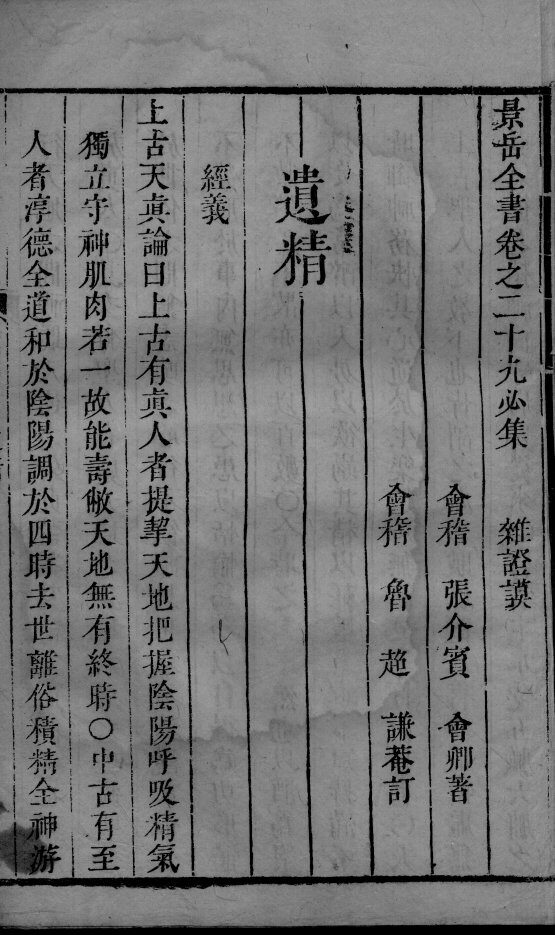 景岳全書卷之二十九必集　雜證謨
會稽　張介賓　會卿著
會稽　魯　超　謙菴訂
遺精
經義
上古天眞論曰上古有眞人者提挈天地把握陰陽呼吸精氣
獨立守神肌肉若一故能壽敝天地無有終時〇中古有至
人者淳德全道和於陰陽調於四時去世離俗積精全神游